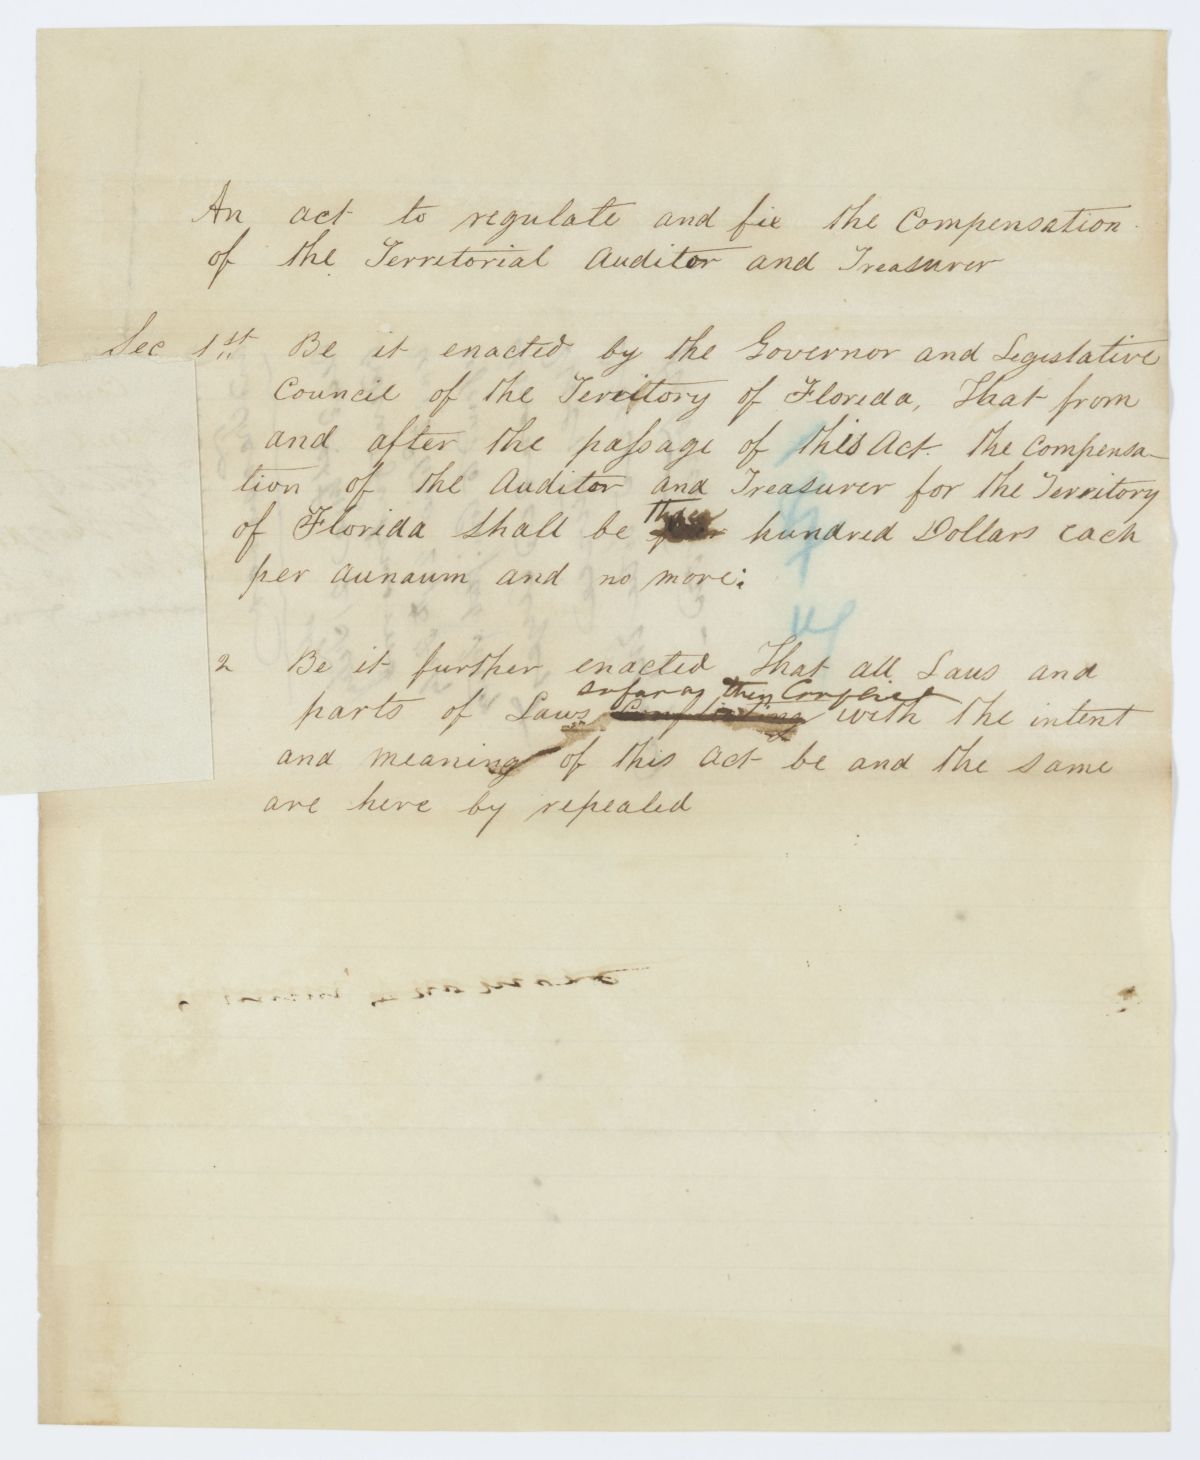 An act to regulate and fix the Compensation
of the Territorial Auditor and Treasurer
Sec 1st Be it enacted by the Governor and Legislative
Council of the Territory of Florida, That from
and after the passage of this Act the Compensa-
tion of the Auditor and Treasurer for the Territory
three
of Florida shall be hundred Dollars each
per aunaum and no more:
2 Be it further enacted That all Laws and
so far as they Conflict
parts of Laws Conflicting with the intent
and meaning of this Act be and the same
are here by repealed